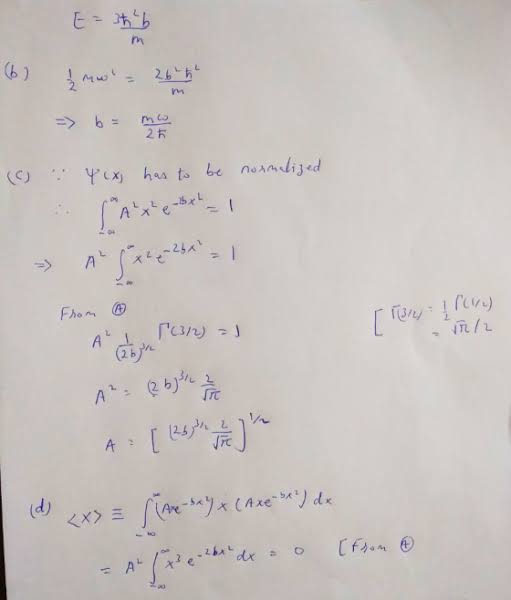 E = 3ħ²b/m
(b) 1/2 mω² = 2b²ħ²/m
=> b = mω/2ħ
(c) ∵ Ψ(x) has to be normalized
∴ ∫_{-∞}^{∞} A²x² e^{-2bx²} = 1
=> A² ∫_{-∞}^{∞} x² e^{-2bx²} = 1
From Ⓐ
A² 1/(2b)^{3/2} Γ(3/2) = 1
[Γ(3/2) = 1/2 Γ(1/2)
= √π/2
A² = (2b)^{3/2} 2/√π
A = [(2b)^{3/2} 2/√π]^{1/2}
(d) <x> ≡ ∫_{-∞}^{∞} (Axe^{-bx²}) x (Axe^{-bx²}) dx
= A² ∫_{-∞}^{∞} x³ e^{-2bx²} dx = 0 [From Ⓐ